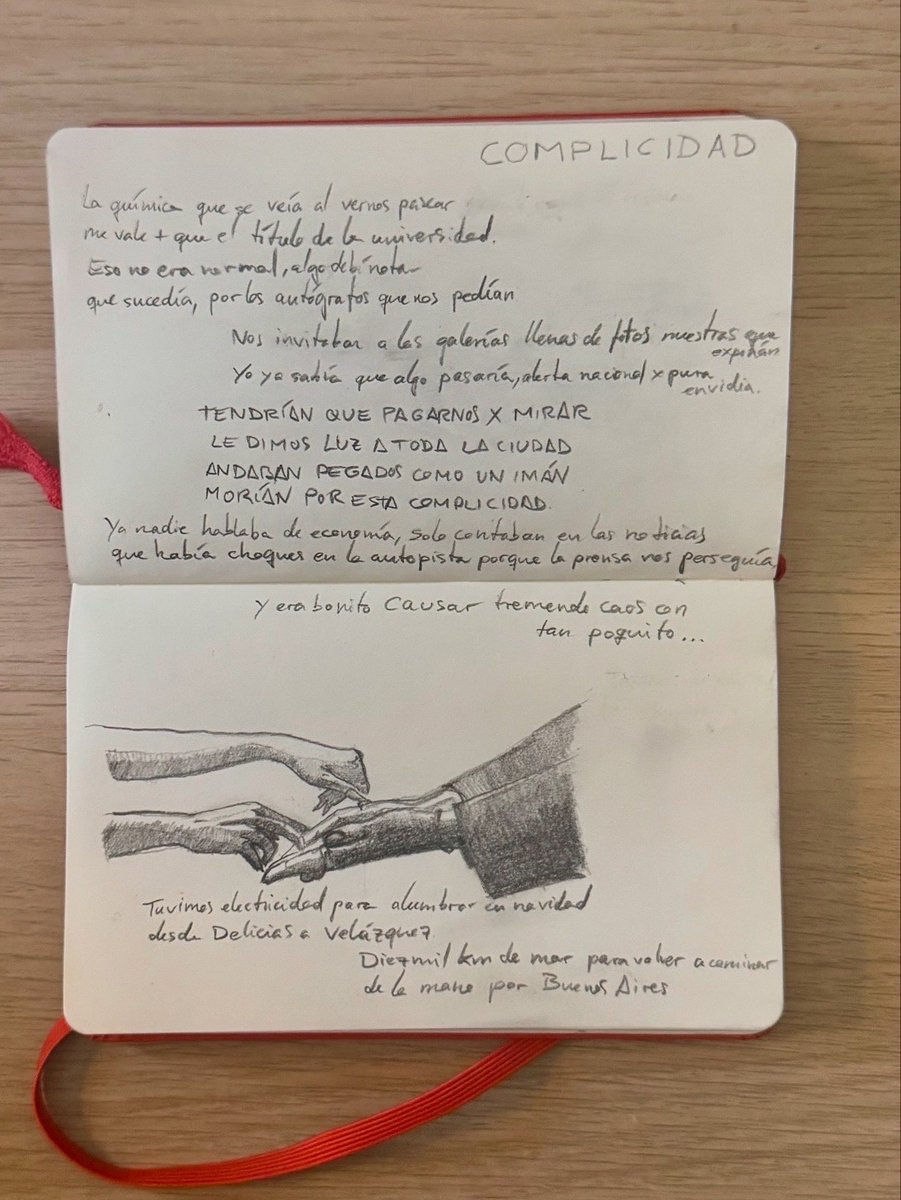 COMPLICIDAD
La química que se veía al vernos pasear
me vale + que el título de la universidad.
Eso no era normal, algo debí notar
que sucedía, por los autógrafos que nos pedían
Nos invitaban a las galerías llenas de fotos nuestras que
exponían
Yo ya sabía que algo pasaría, alerta nacional x pura
envidia.
TENDRÍAN QUE PAGARNOS X MIRAR
LE DIMOS LUZ A TODA LA CIUDAD
ANDABAN PEGADOS COMO UN IMÁN
MORÍAN POR ESTA COMPLICIDAD.
Ya nadie hablaba de economía, solo contaban en las noticias
que había choques en la autopista porque la prensa nos perseguía
y era bonito causar tremendo caos con
tan poquito...
Tuvimos electricidad para alumbrar en navidad
desde Delicias a Velázquez
Diezmil km de mar para volver a caminar
de la mano por Buenos Aires